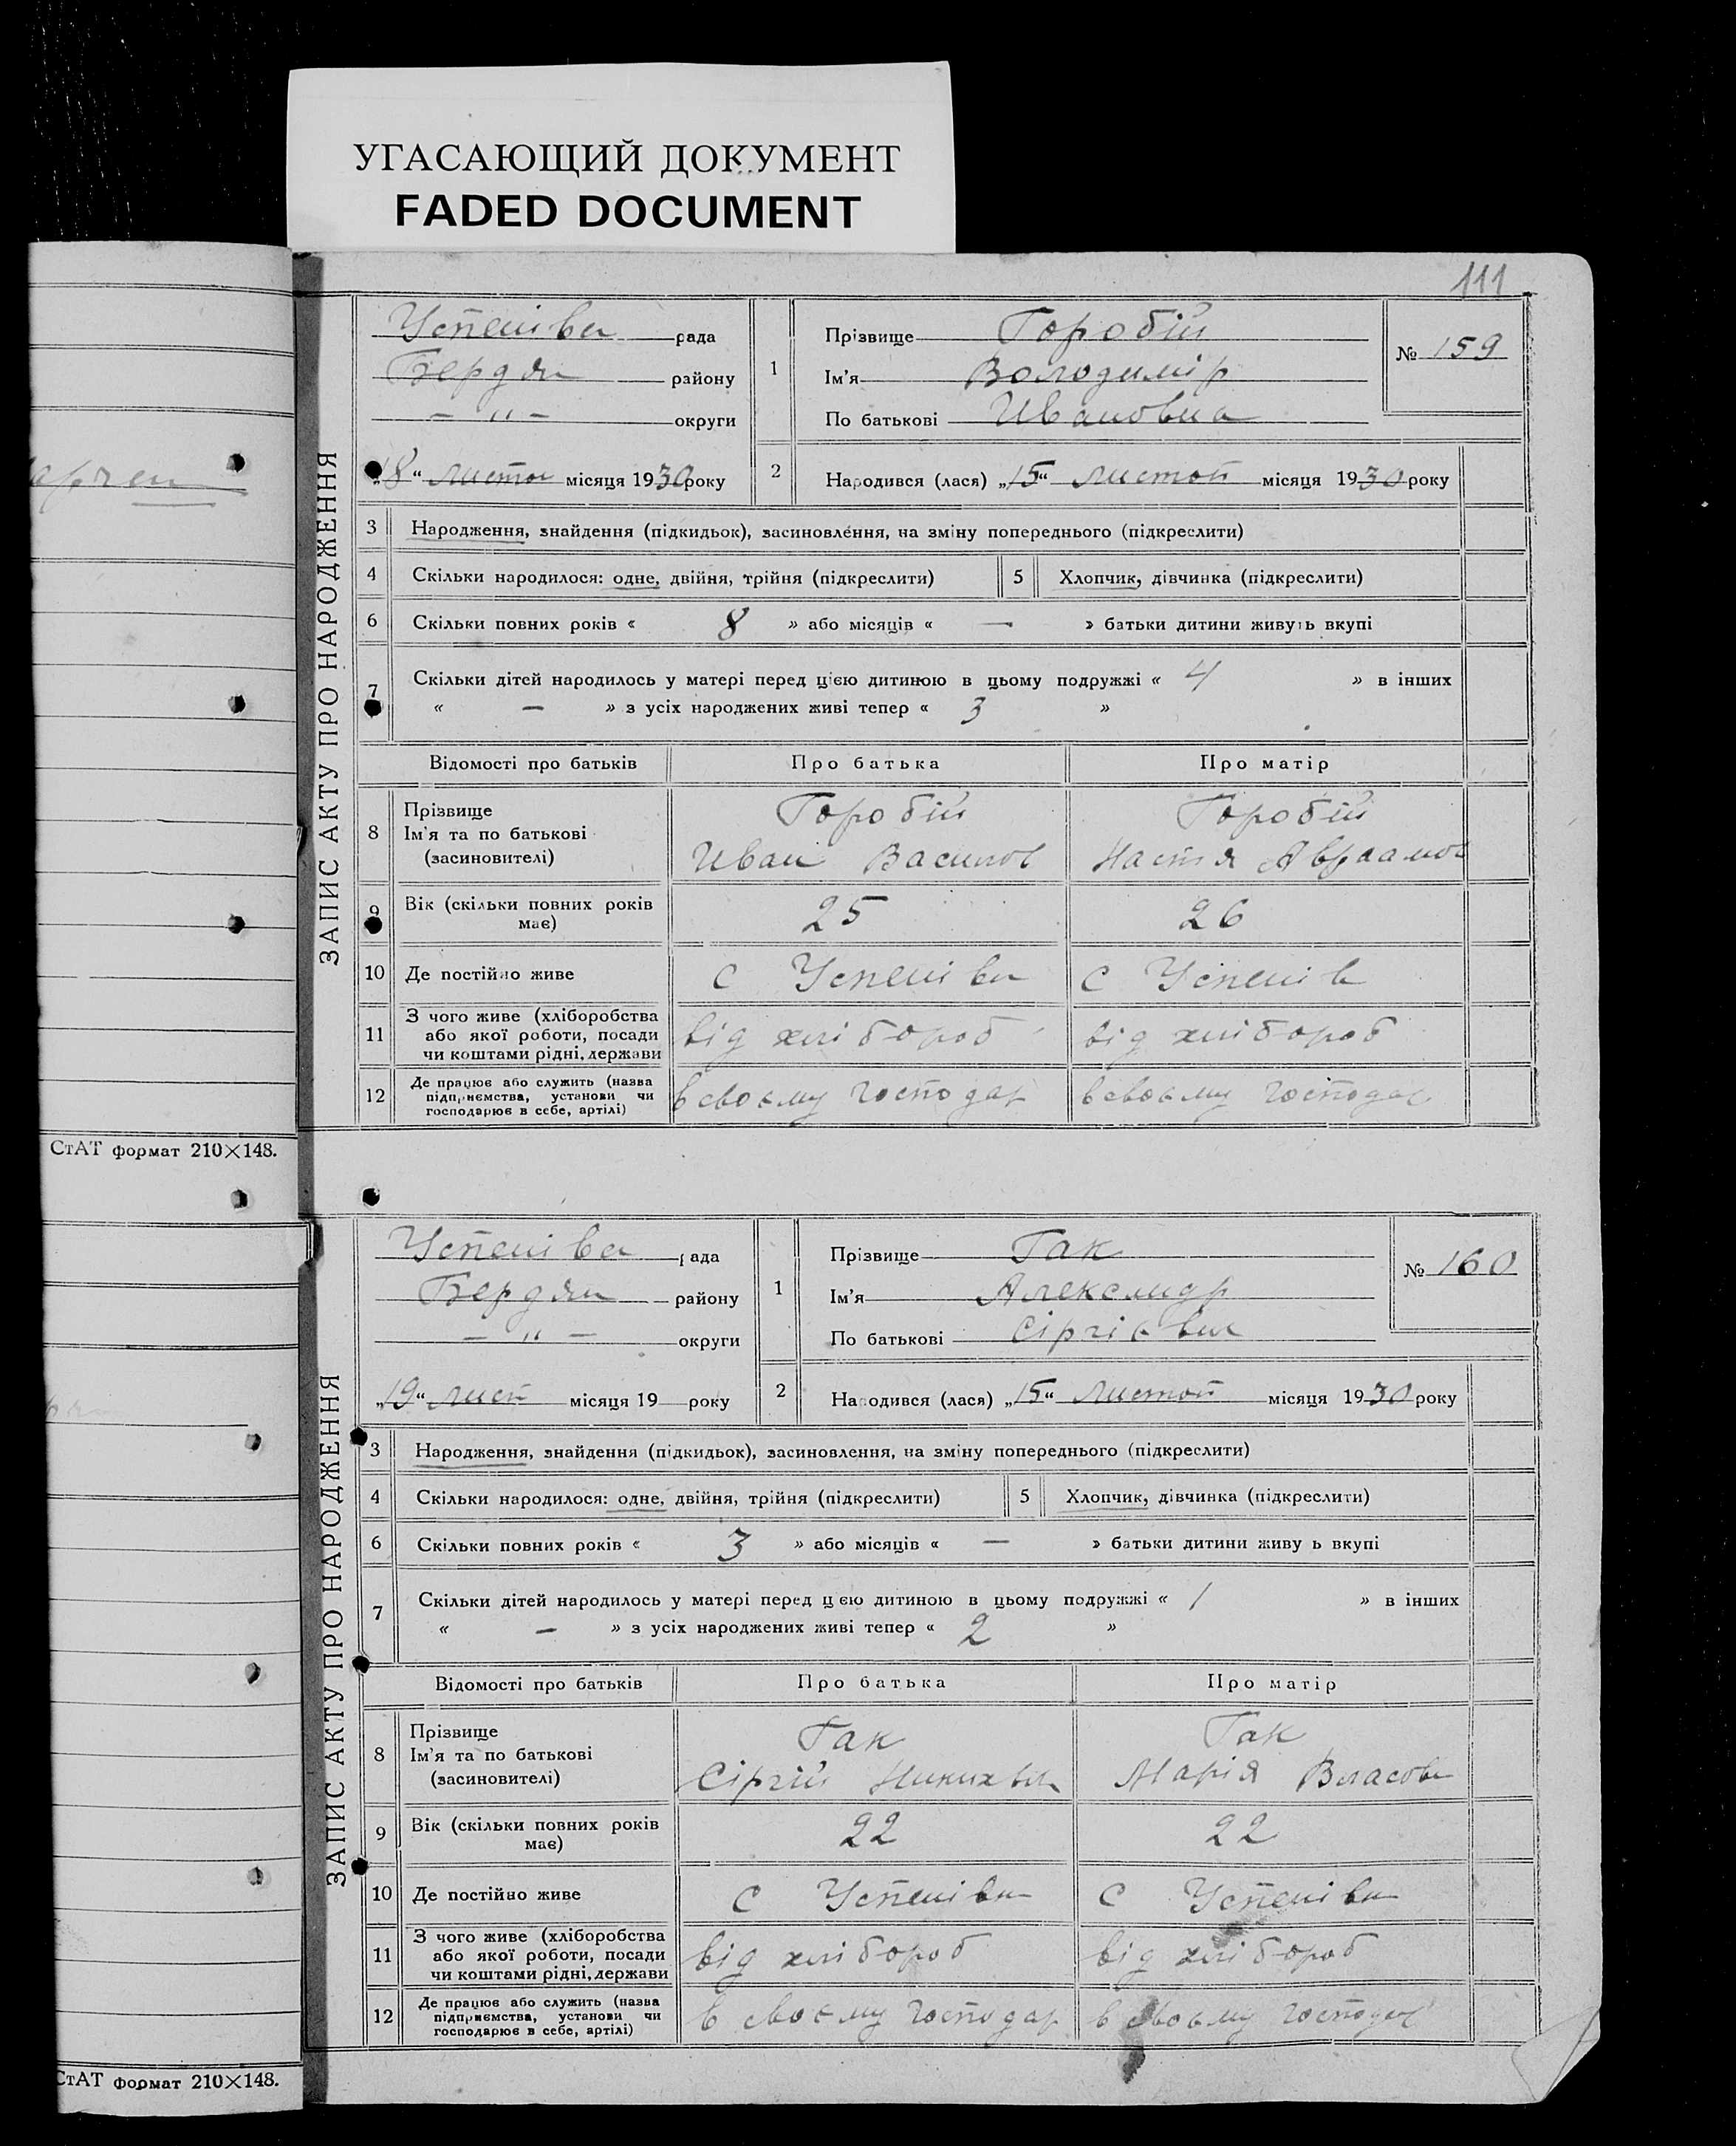 УГАСАЮЩИЙ ДОКУМЕНТ
FADED DOCUMENT
111
ЗАПИС АКТУ ПРО НАРОДЖЕННЯ
Успенівка рада
Бердян району
— „ — округи
„18“ листоп місяця 1930 року
1
Прізвище Горобій
Ім'я Володимір
По батькові Ивановиа
№ 159
2 Народився (лася) „15“ листоп місяця 1930 року
3 Народження, знайдення (підкидьок), засиновлення, на зміну попереднього (підкреслити)
4 Скільки народилося: одне, двійня, трійня (підкреслити) 5 Хлопчик, дівчинка (підкреслити)
6 Скільки повних років « 8 » або місяців « — » батьки дитини живуть вкупі
7 Скільки дітей народилось у матері перед цією дитиною в цьому подружжі « 4 » в інших
« — » з усіх народжених живі тепер « 3 »
Відомості про батьків Про батька Про матір
8 Прізвище Горобій Горобій
Ім'я та по батькові Иван Васильов Настя Авраамов
(засиновителі)
9 Вік (скільки повних років має) 25 26
10 Де постійно живе с Успенівки с Успенів
11 З чого живе (хліборобства або якої роботи, посади чи коштами рідні, держави від хлібороб від хлібороб
12 Де працює або служить (назва підприємства, установи чи господарює в себе, артілі) в своєму господар в своєму господар
СтАТ формат 210×148.
ЗАПИС АКТУ ПРО НАРОДЖЕННЯ
Успенівка рада
Бердян району
— „ — округи
„19“ лист місяця 19 року
1
Прізвище Гак
Ім'я Александр
По батькові Сіргієвич
№ 160
2 Народився (лася) „15“ Листоп місяця 1930 року
3 Народження, знайдення (підкидьок), засиновлення, на зміну попереднього (підкреслити)
4 Скільки народилося: одне, двійня, трійня (підкреслити) 5 Хлопчик, дівчинка (підкреслити)
6 Скільки повних років « 3 » або місяців « — » батьки дитини живу ь вкупі
7 Скільки дітей народилось у матері перед цією дитиною в цьому подружжі « 1 » в інших
« — » з усіх народжених живі тепер « 2 »
Відомості про батьків Про батька Про матір
8 Прізвище Гак Гак
Ім'я та по батькові Сіргій Марія Власов
(засиновителі)
9 Вік (скільки повних років має) 22 22
10 Де постійно живе с Успенівки с Успенівки
11 З чого живе (хліборобства або якої роботи, посади чи коштами рідні, держави від хлібороб від хлібороб
12 Де працює або служить (назва підприємства, установи чи господарює в себе, артілі) в своєму господар в своєму господар
СтАТ формат 210×148.